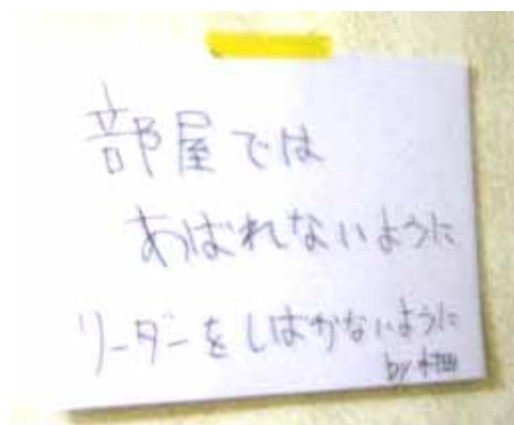 部屋では
あばれないように
リーダーをしばかないように
by